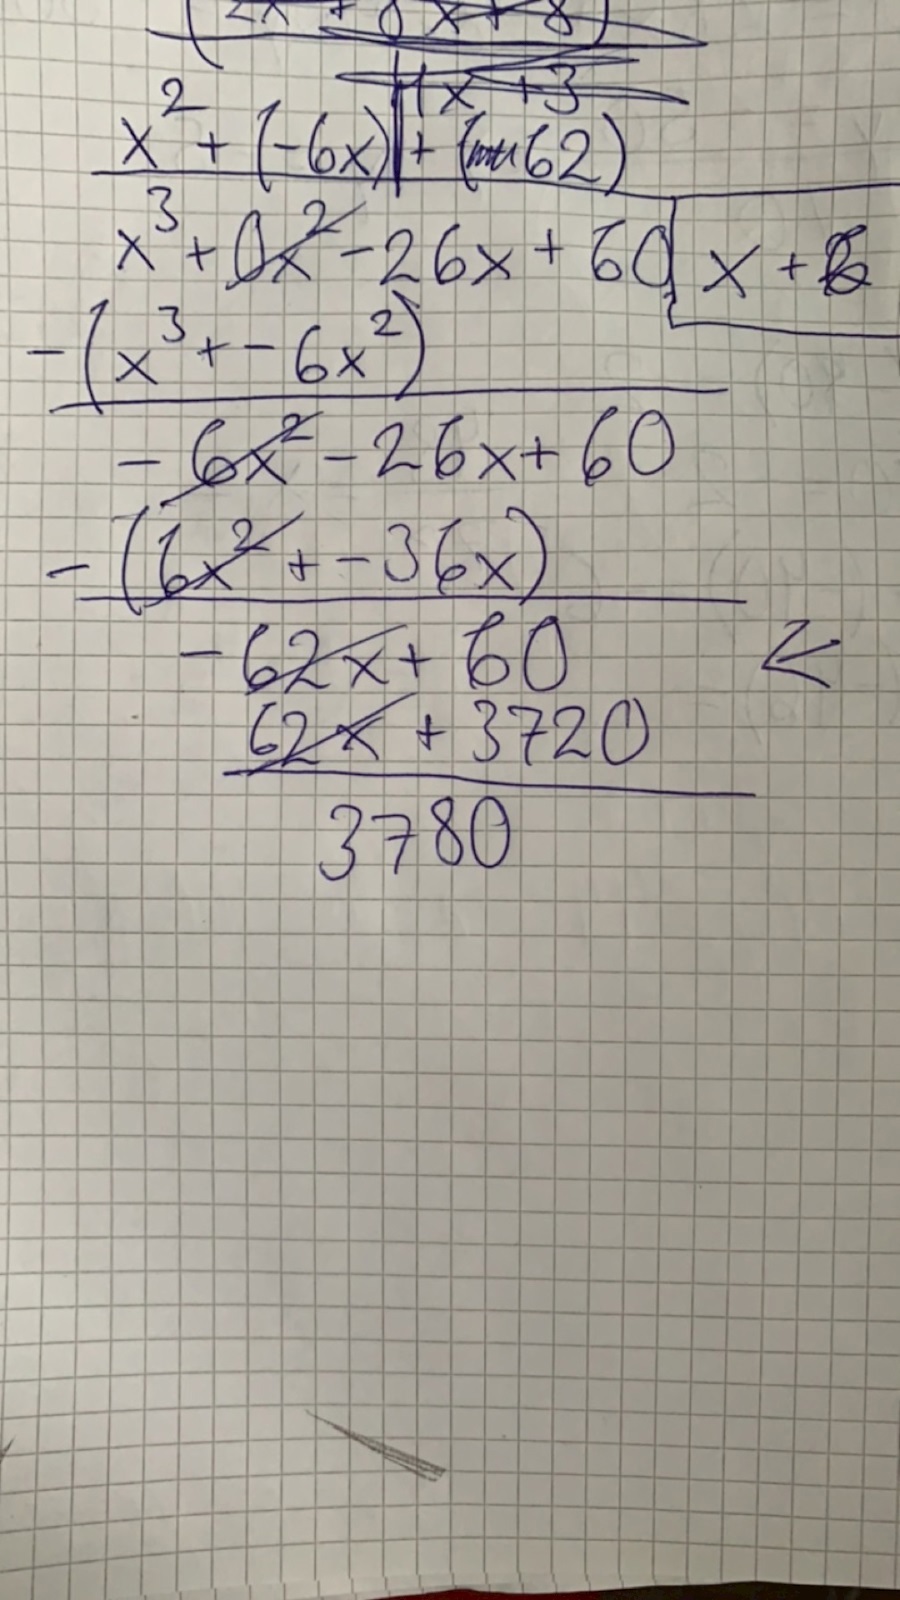 (2x + 8x + 8)
1x + 3
x² + (-6x) + (62)
x³ + 0x² - 26x + 60 x + 6
- (x³ + - 6x²)
- 6x² - 26x + 60
- (6x² + - 36x)
- 62x + 60 <
62x + 3720
3780